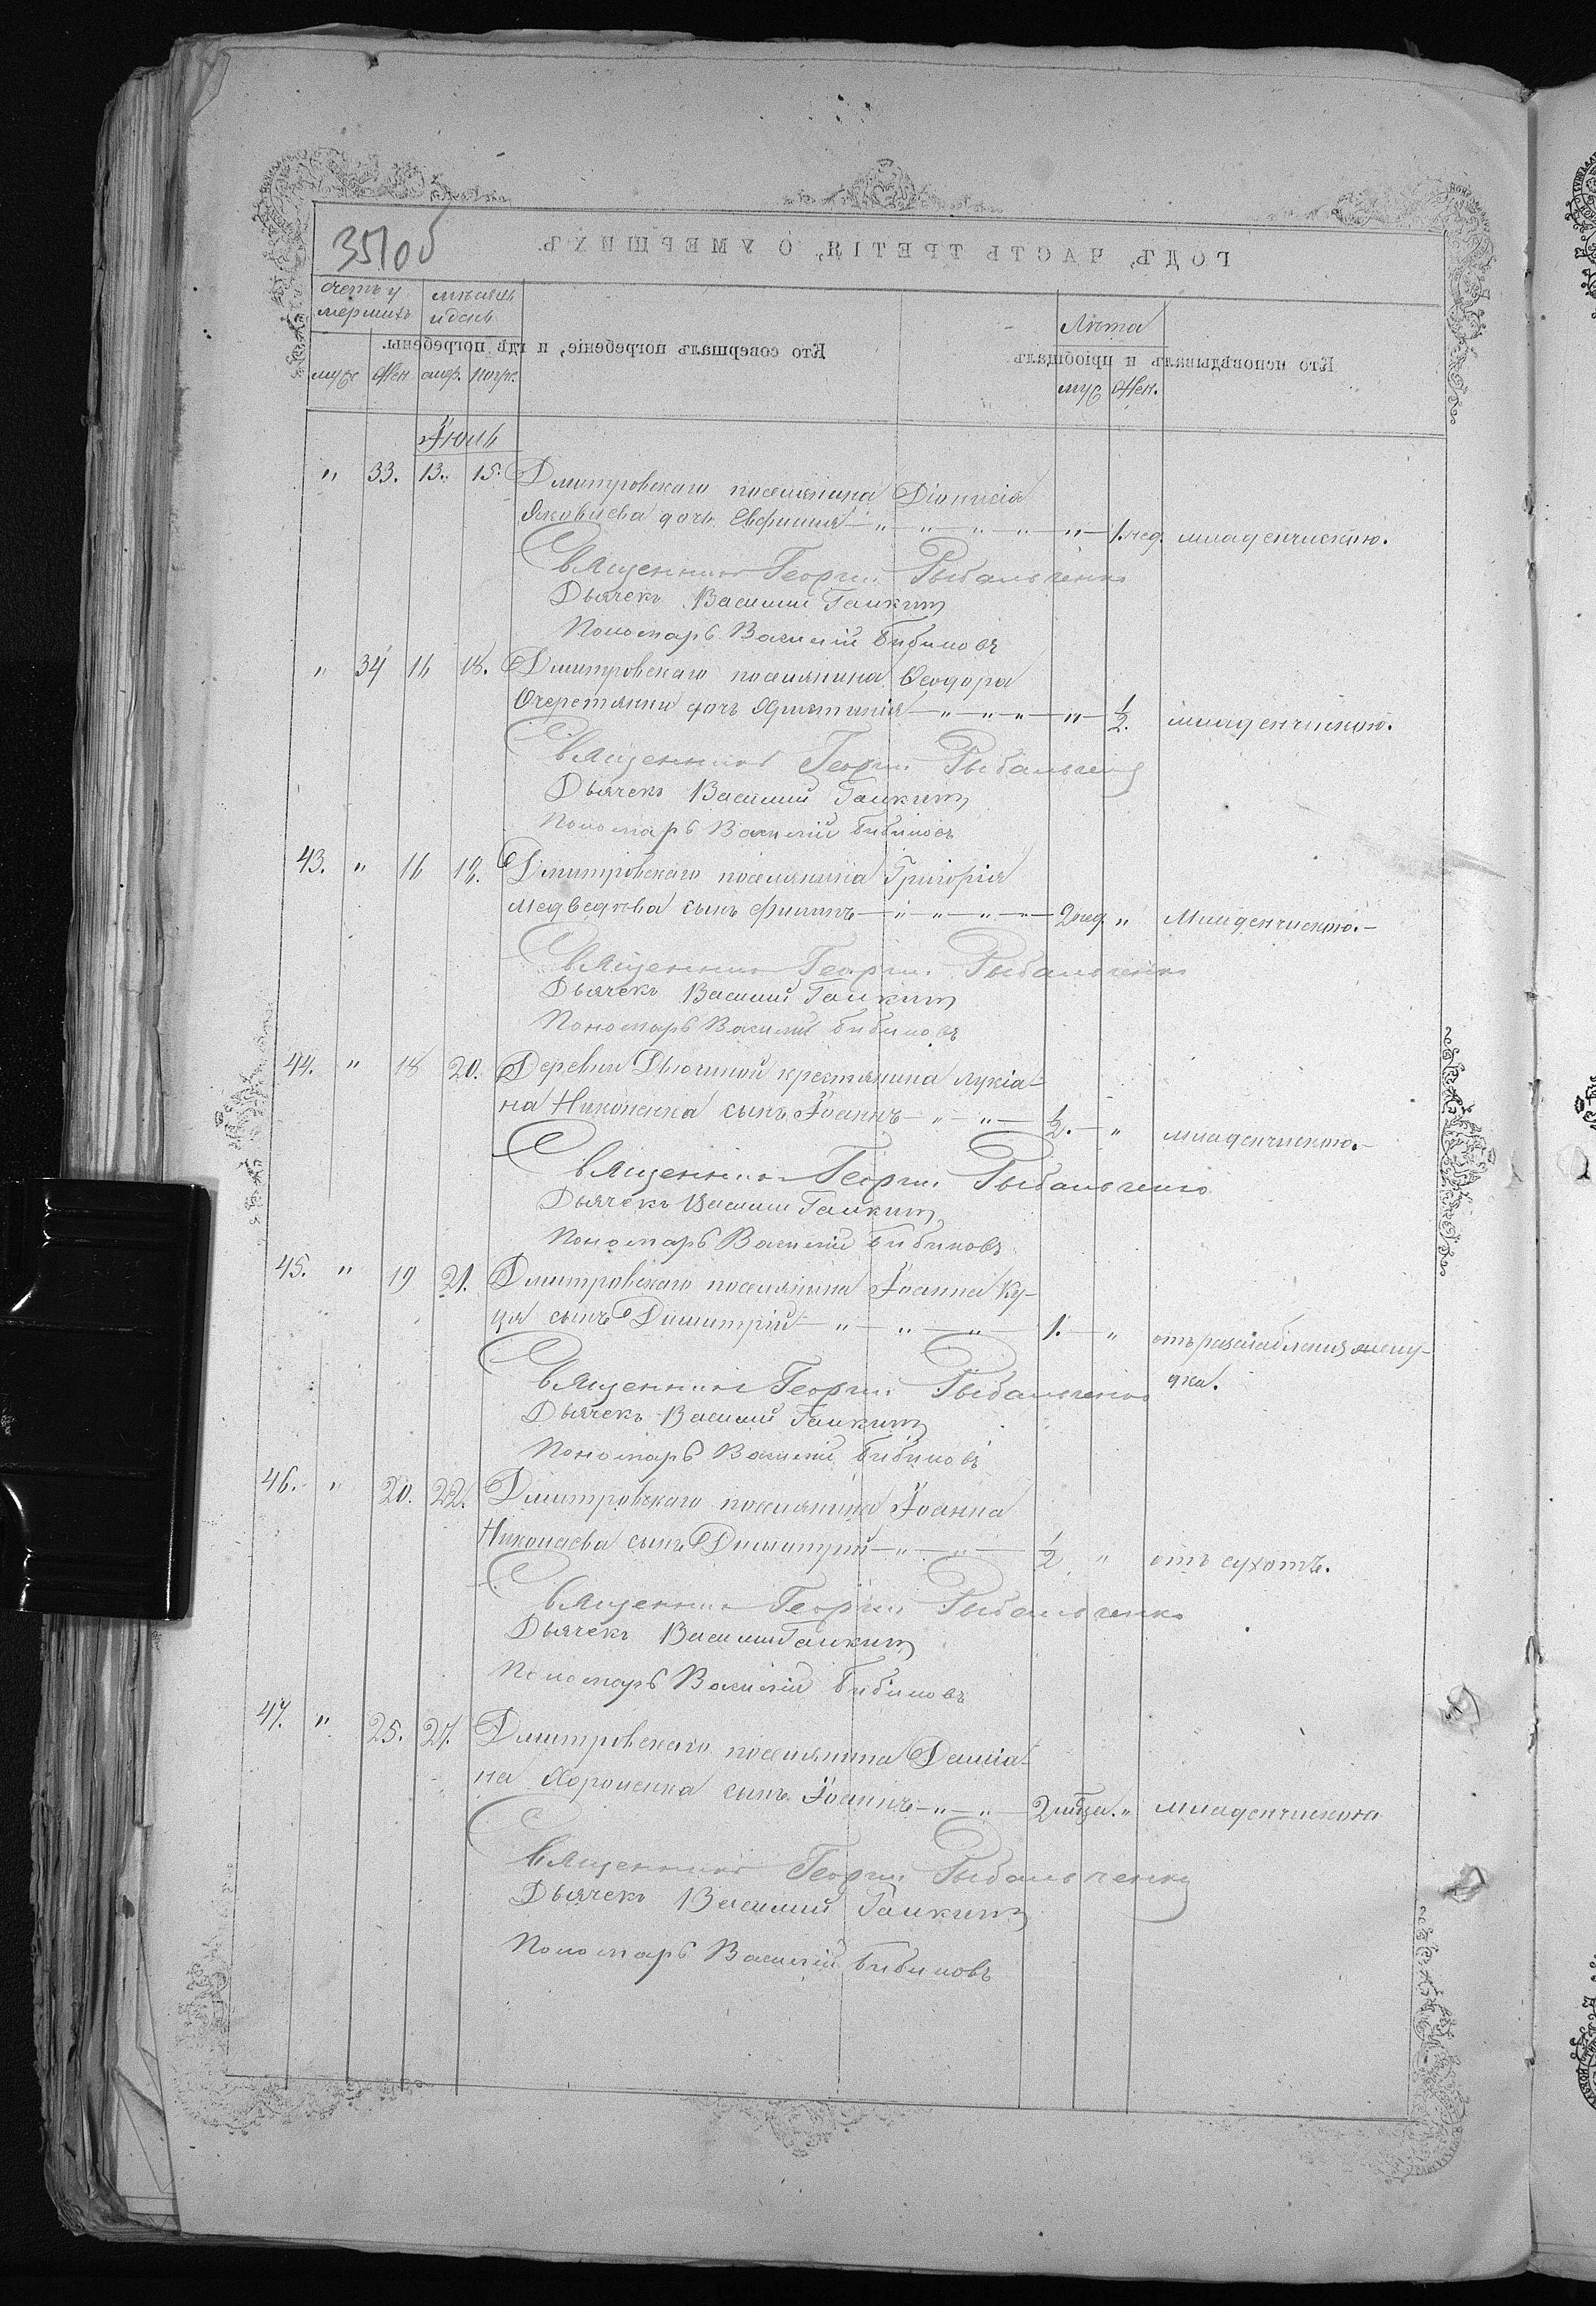 351об
ГОДЪ, ЧАСТЬ ТРЕТІЯ, О УМЕРШИХЪ.
счетъ у
мершихъ
мѣсяцъ
и день
Лѣта
Кто совершалъ погребеніе, и гдѣ погребены.
Кто исповѣдывалъ и пріобщалъ
муж жен. смер. погре. муж жен.
Іюль
" 33. 13. 15. Дмитровскаго поселянина Діонисія
Яковлева дочь Евфимія — " — " — " — " — " — 1. нед. младенческою.
Священникъ Георгій Рыбальченко
Дьячекъ Василий Галкинъ
Пономарь Василій Бибиковъ
" 34 16 18. Дмитровскаго поселянина Ѳеодора
Очеретянки дочь Христинія — " — " — " — " — 1/2. младенческою.
Священникъ Георгій Рыбальченко
Дьячекъ Василий Галкинъ
Пономарь Василій Бибиковъ
43. " 16 18. Дмитровскаго поселянина Григорія
Медведева сынъ Филипъ — " — " — " — " — 2 нед. " Младенческою. —
Священникъ Георгій Рыбальченко
Дьячекъ Василий Галкинъ
Пономарь Василій Бибиковъ
44. " 18 20. Деревни крестянина Лукіа-
на Николенка сынъ Іоаннъ — " — " — 1/2. — " младенческою. —
Священникъ Георгій Рыбальченко
Дьячекъ Василий Галкинъ
Пономарь Василій Бибиковъ
45. " 19 21. Дмитровскаго поселянина Іоанна Ку-
ця сынъ Димитрій — " — " — " — 1. — " отъ разслабленія желу-
дка.
Священникъ Георгій Рыбальченко
Дьячекъ Василий Галкинъ
Пономарь Василій Бибиковъ
46. " 20. 22. Дмитровскаго поселянина Іоанна
Николаева сынъ Димитрій — " — " — 1/2 " отъ сухотъ.
Священникъ Георгій Рыбальченко
Дьячекъ Василий Галкинъ
Пономарь Василій Бибиковъ
47. " 25. 27. Дмитровскаго поселянина Даміа-
на Хороленка сынъ Іоаннъ — " — " — 2 мѣсц. " младенческою
Священникъ Георгій Рыбальченко
Дьячекъ Василий Галкинъ
Пономарь Василій Бибиковъ